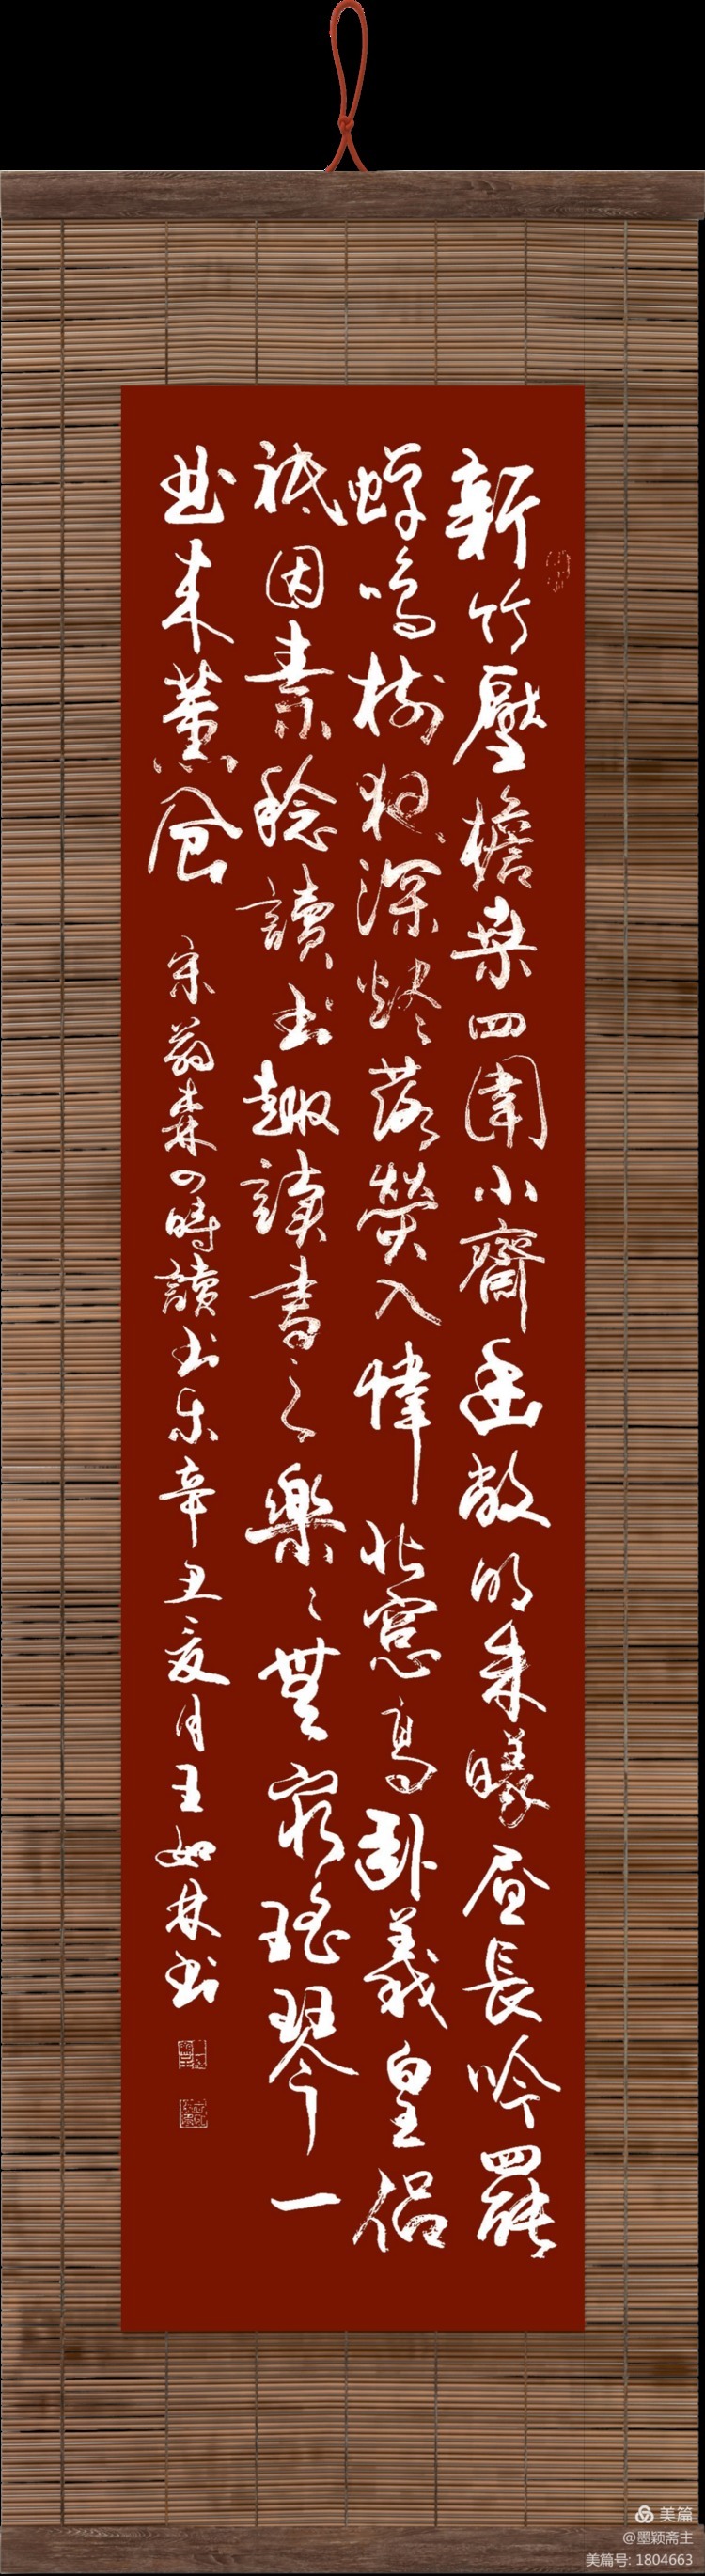 新竹壓檐桑四圍小齋幽敞明朱曦昼長吟罷
蝉鳴樹夜深烬落螢入幃北窓高卧羲皇侣
祗因素稔讀书趣讀書之樂〻無窮瑶琴一
曲来薰风 宋翁森四時讀书乐辛丑夏月王如林书
美篇
@墨颖斋主
美篇号: 1804663